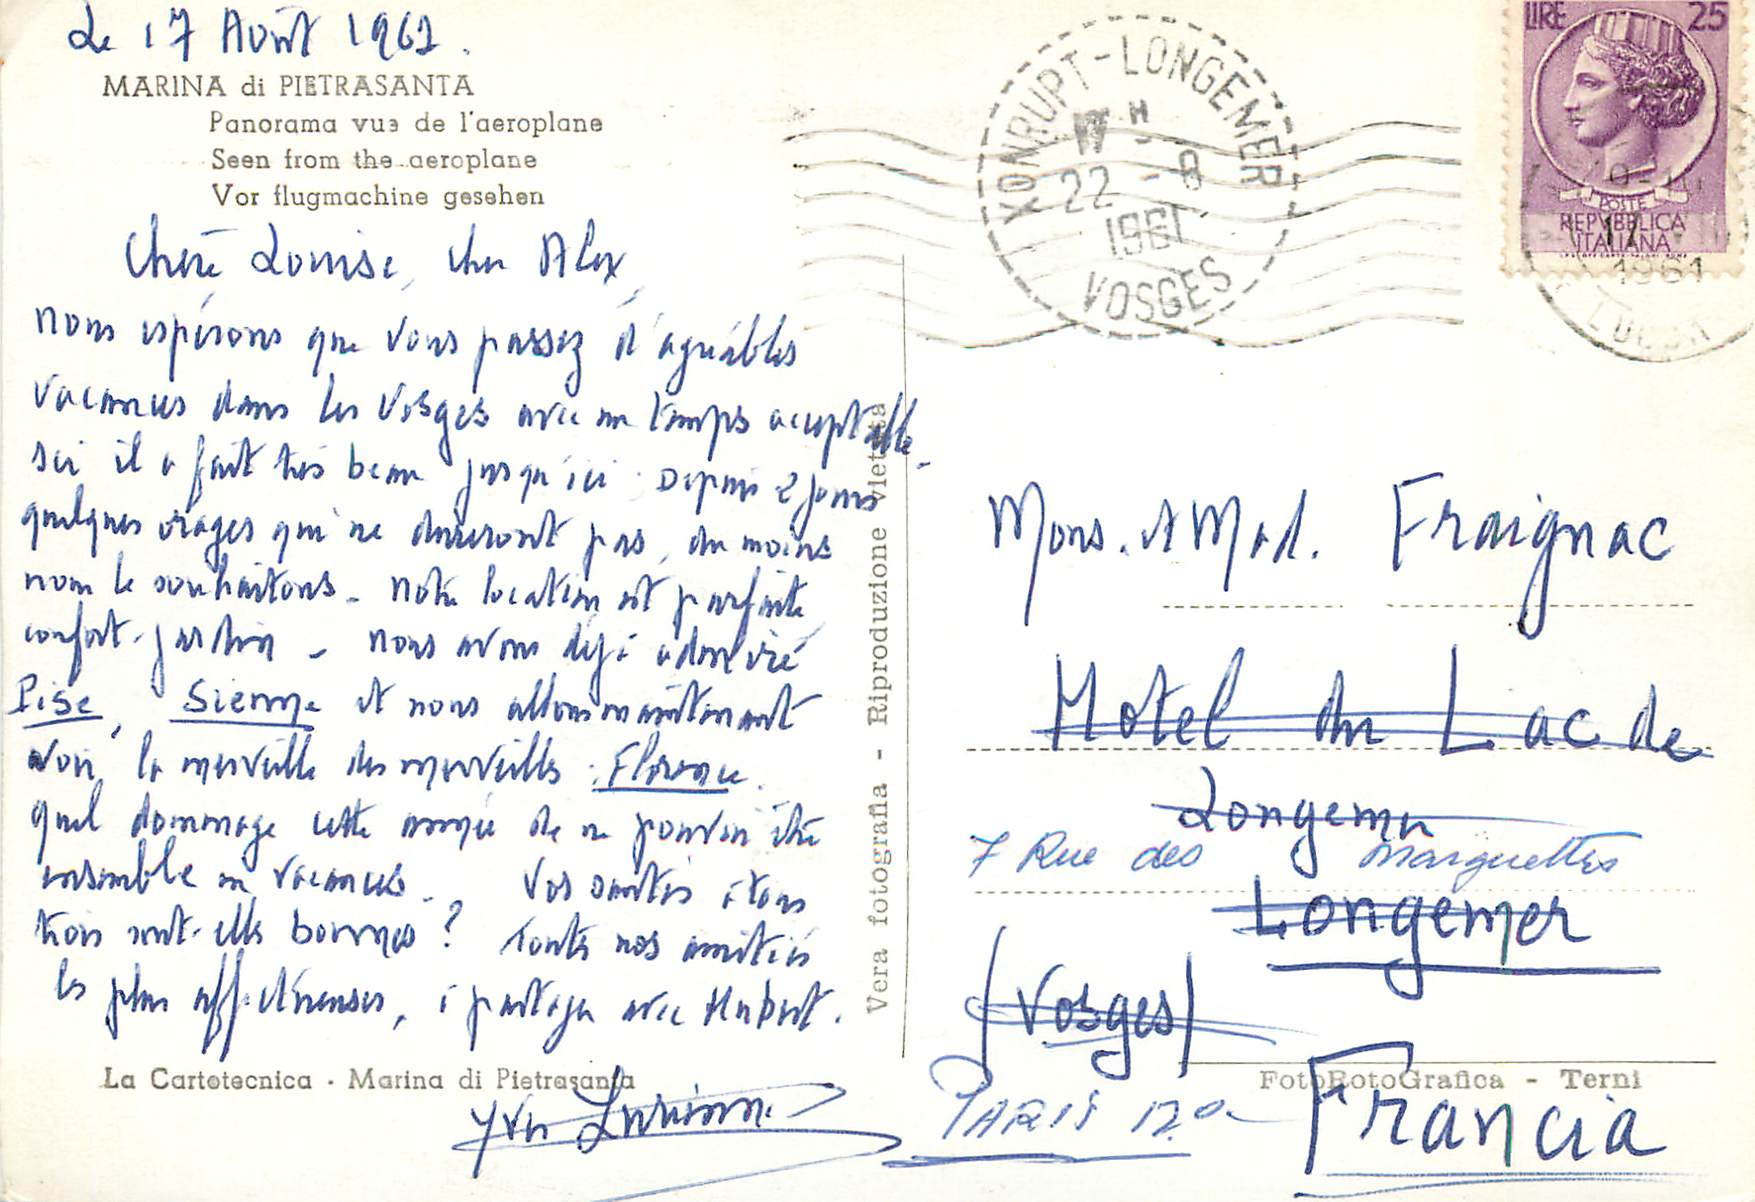 Le 17 Août 1961.
MARINA di PIETRASANTA
Panorama vue de l'aeroplane
Seen from the aeroplane
Vor flugmachine gesehen
Chère Louise, cher Alex,
nous espérons que vous passez d'agréables
vacances dans les Vosges avec un temps acceptable.
Ici il a fait très beau jusqu'ici. Depuis 2 jours
quelques orages qui ne dureront pas, du moins
nous le souhaitons. Notre location est parfaite
confort. jardin - nous avons déjà admiré
Pise, Sienne et nous allons maintenant
voir la merveille des merveilles : Florence.
quel dommage cette année de ne pouvoir être
ensemble en vacances. Vos santés à tous
trois sont-elles bonnes ? Toutes nos amitiés
les plus affectueuses, à partager avec Hubert.
La Cartotecnica - Marina di Pietrasanta
Yves Lucienne
Vera fotografia - Riproduzione vietata
XONRUPT-LONGEMER
17 H
22 - 8
1961
VOSGES
LIRE 25
POSTE
REPVBBLICA
ITALIANA
17
1961
LUCCA
Mons. et Mad. Fraignac
Hotel du Lac de
Longemer
7 Rue des Marguettes
Longemer
(Vosges)
FotoRotoGrafica - Terni
PARIS 12e
Francia